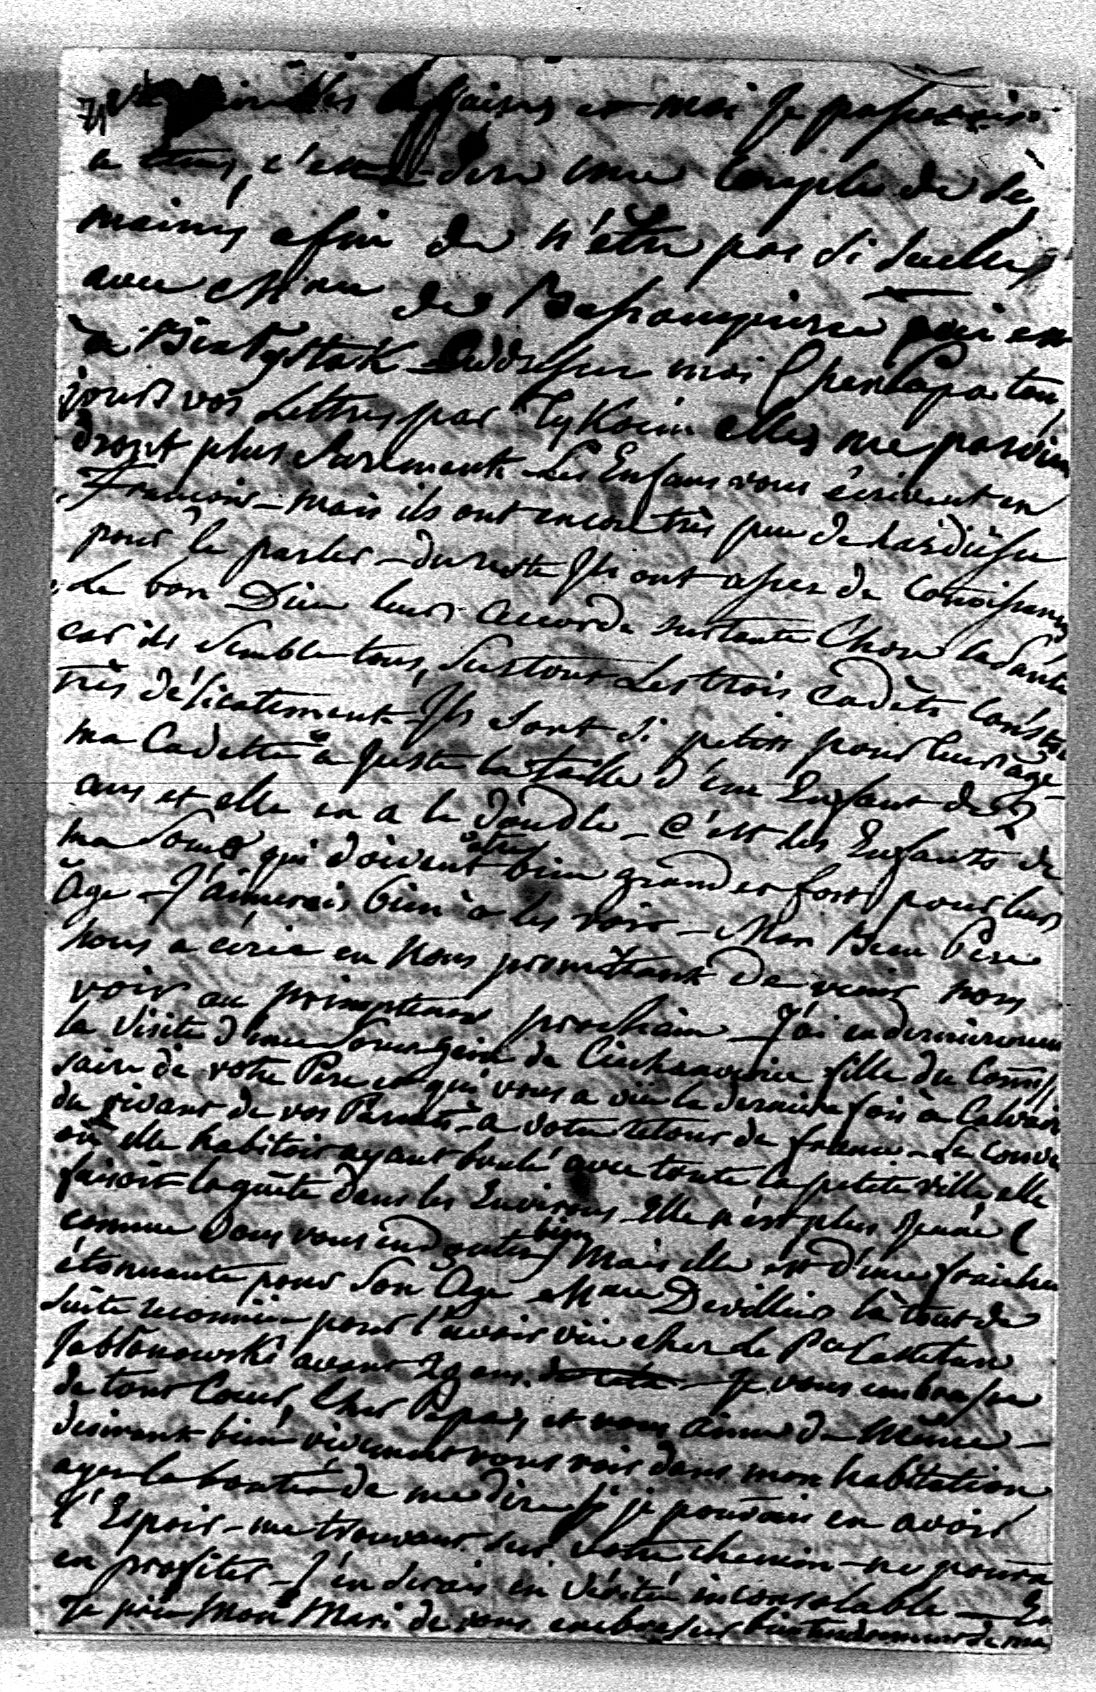 les affaires et moi je passerois
a  c'est a dire une couple de se
maines afin de n'être pas si seulle
avec Mme de Bassompierre qui est
à Bialystok Addresser moi Cher Papa tou
jours vos Lettres par Tykocin elles me parvien
dront plus surement - Les Enfans vous écrivent en
François - mais ils ont encore très peu de hardiesse
pour le parler - du reste Ils ont assez de conoissances
Le bon Dieu leurs accorde surtoute Chose la Santé
car ils semble tous, surtout Les trois cadèts
très délicatement Ils sont si petits pour leurs âge -
ma Cadette a juste la taille d'une Enfant de
ans et elle en a le double - C'est les Enfants de
ma Soeur qui doivent être bien grand et fort pour leurs
Âge - J'aimerois bien à les voir - Mon Beau Père
nous a écrie en nous promettant de venir nous
voir au primptems prochain - J'ai eu dernierement
la visite d'une  de  fille du Comis
saire de votre Pere et qui vous a vüe la derniere fois à
du vivant de vos Parents - a votre retour de france - Le Couve
où elle habitoit ayant brulé avec toute la petite ville elle
faisoit la quête dans les Environs Elle n'est plus Jeune
comme vous vous en doutez bien Mais elle est d'une fraicheur
étonnante pour son Age Mme Devilliers la tout de
suite reconnüe pour l'avoir vüe chez le Palatin
Jablonowski avant 29 ans - Je vous embrasse
de tout Coeur, Cher Papa, et vous aime de même -
desirant bien vivement vous voir dans mon habitation
ayez la bonté de me dire si je pouvois en avoir
l'Espoir - me trouvant sur votre chemin - ne pouvoir
en profiter - J'en serois en vérité inconsolable -
Je prie Mon Mari de vous embrasser bien tendrement de ma